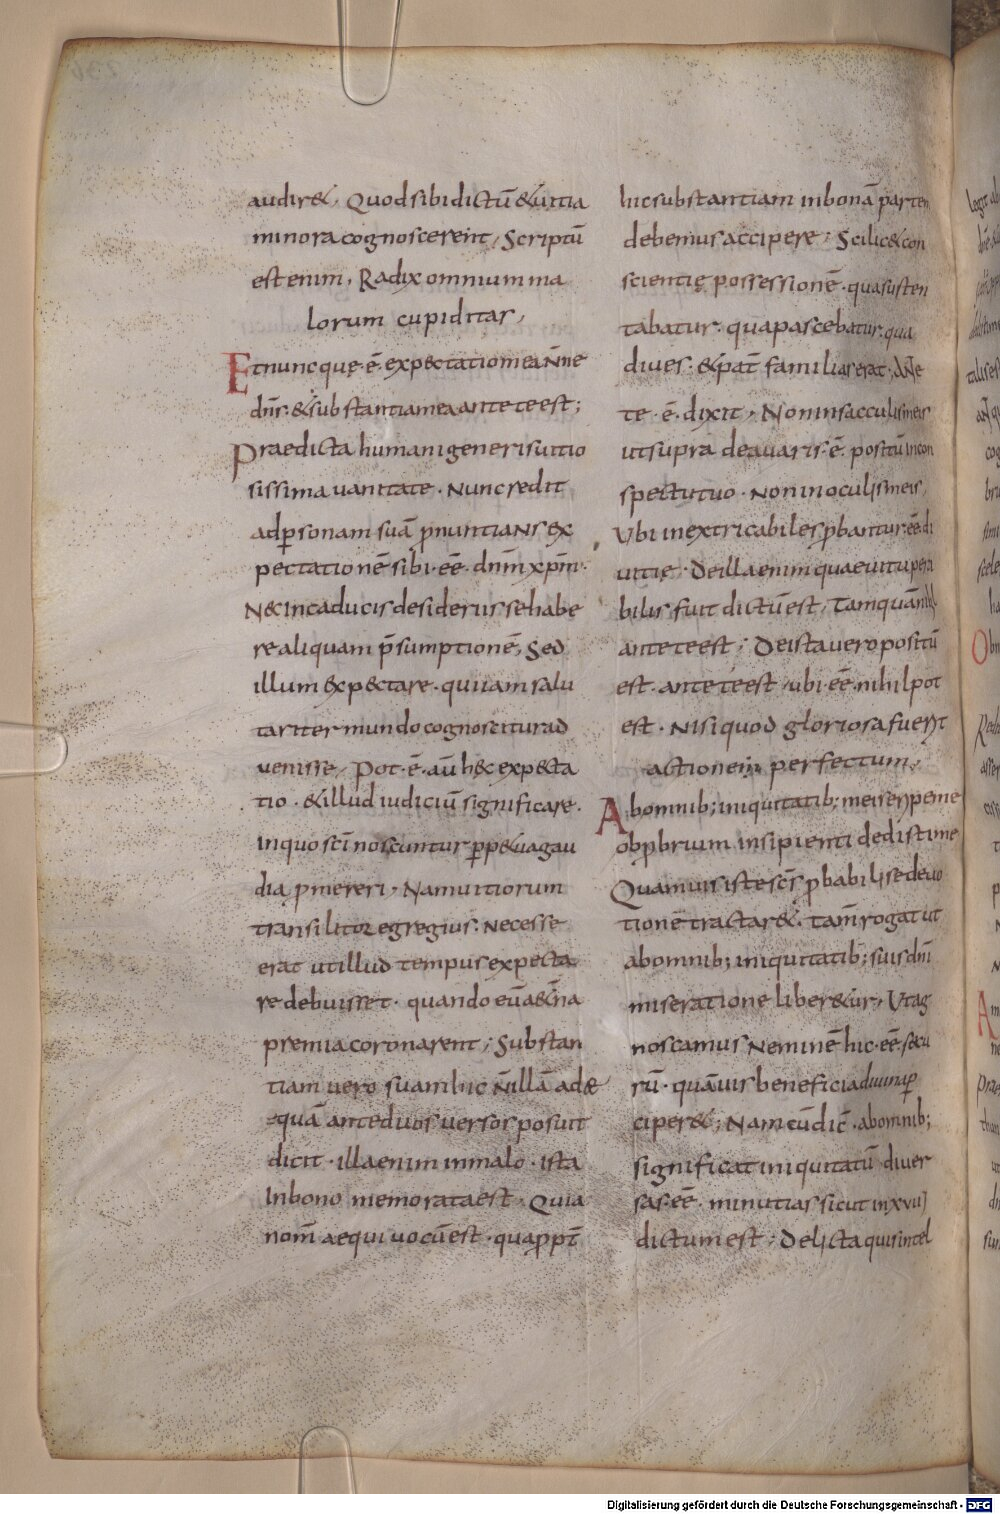 audir&, Quod sibi dictū & uitia
minora cognoscerent, Scriptū
est enim, Radix omnium ma
lorum cupiditas,
Et nunc quę ē expectatio mea Ñne
dn̄s & substantia mea ante te est;
Praedicta humani generis uitio
sissima uanitate. Nunc redit
ad personam suā ꝓnuntians ex
pectationē sibi eē dn̄m xp̄m.
N& in caducis desideriis se habe
re aliquam p̄sumptionē, Sed
illum exp&tare. qui iam salu
tariter mundo cognoscitur ad
uenisse, Pot ē aū h&c exp&ta
tio. & illud iudiciū significare.
In quo sc̄i noscuntur ꝑp&ua gau
dia ꝓmereri, Nam uitiorum
transilitor egregius. Necesse
erat ut illud tempus expecta
re debuisset. quando eū a&erna
premia coronarent, Substan
tiam uero suam hic N̄ illā ad&
quā ante duos uersos posuit
dicit. illa enim in malo. ista
In bono memorata est. Quia
nom̄ aequiuocū est. quaꝓpt̄
hic substantiam in bonā partem
debemus accipere, Scilic& con
scientię possessionē. qua susten
tabatur. qua pascebatur. qua
diues. & pat̄ familias erat. Ante
te ē. dixit, Non in sacculis meis
ut supra de auaris ē positū In con
spectu tuo. Non in oculis meis,
Ubi inextricabiles ꝓbantur eē di
uitię. De illa enim quae uitupera
bilis fuit dictū est, Tamquā nihil
ante te est; De ista uero positū
est. ante te est, ubi eē nihil pot
est. Nisi quod gloriosa fuerit
actione perfectum,
Ab omnib; iniquitatib; meis eripe me
obꝓbrium insipienti dedisti me
Quamuis iste sc̄s ꝓbabili se deuo
tionē tractar&. tam̄ rogat ut
ab omnib; iniquitatib; suis dn̄i
miseratione liber&ur, Ut ag
noscamus Neminē hic eē secu
rū. quāuis beneficia diuina ꝑ
ciper&; Nam cū dic̄. ab omnib;
significat iniquitatū diuer
sas eē minutias sicut in xvii
dictum est, Delicta quis intel
Digitalisierung gefördert durch die Deutsche Forschungsgemeinschaft - DFG